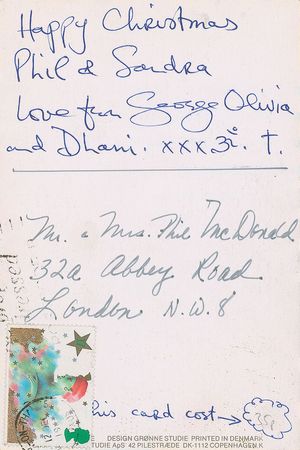 Happy Christmas
Phil & Sandra
Love from George Olivia
and Dhani. xxx ॐ. †.
Mr. & Mrs. Phil McDonald
32a Abbey Road
London N.W.8
his card cost → 35p
DESIGN GRØNNE STUDIE PRINTED IN DENMARK
TUDIE ApS 42 PILESTRÆDE DK-1112 COPENHAGEN K